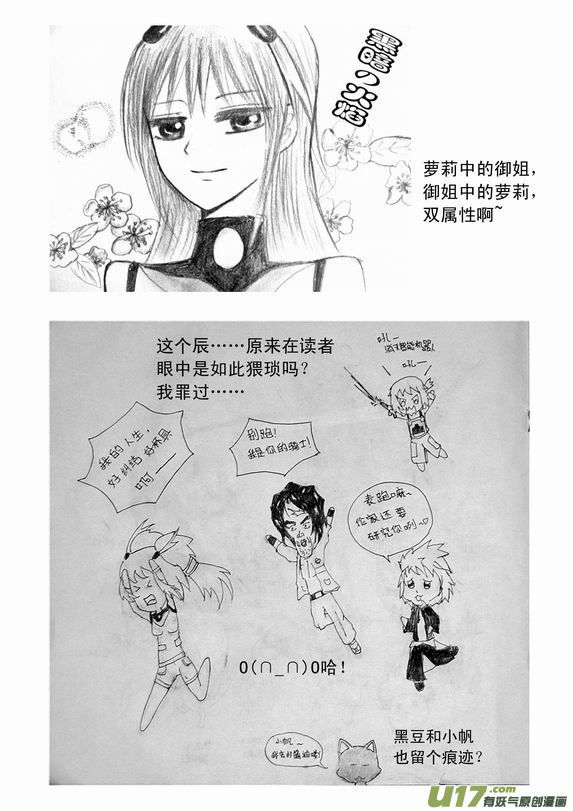 黑暗の火焰
萝莉中的御姐，
御姐中的萝莉，
双属性啊~
这个辰……原来在读者
眼中是如此猥琐吗？
我罪过……
吼—
吼—
我的人生，
好纠结 好杯具
啊——
别跑！
我是你的骑士！
麦跑嘛~
伦家还要
研究你咧~♡
O(∩_∩)O哈！
小帆~
黑豆和小帆
也留个痕迹？
U17.com
有妖气原创漫画